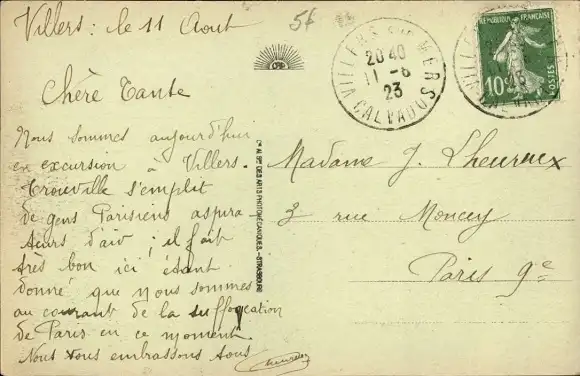 Villers : le 11 Aout
5f
VILLERS sur MERS
20 40
11 - 8
23
CALVADOS
REPUBLIQUE FRANÇAISE
10c
POSTES
Chère Tante
Nous sommes aujourd'hui
en excursion à Villers.
Trouville s'emplit
de gens Parisiens aspira-
teurs d'air ; il fait
très bon ici étant
donné que nous sommes
au courant de la suffocation
de Paris en ce moment
Nous vous embrassons tous
Cie ALSne DES ARTS PHOTOMÉCANIQUES.-STRASBOURG
Madame J. Lheureux
3 rue Moncey
Paris 9e